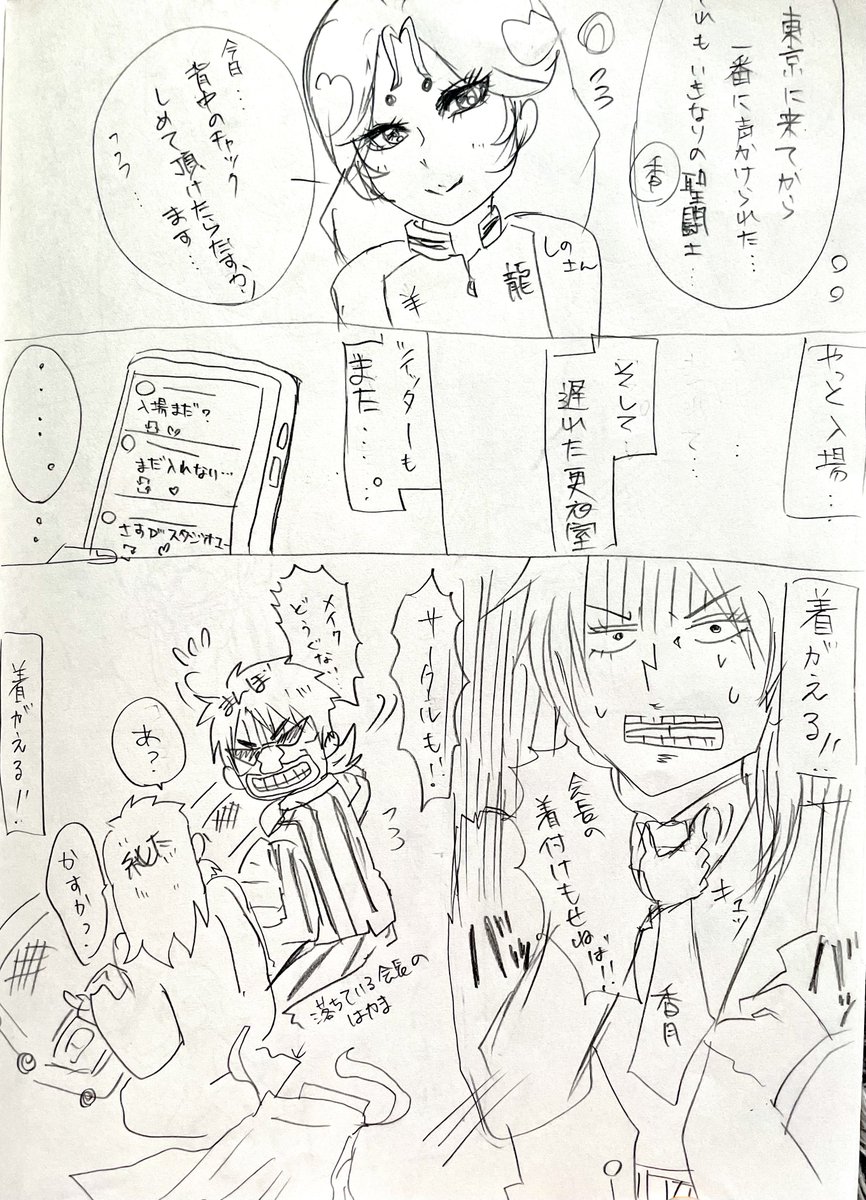 東京に来てから
一番に声かけられた…
それもいきなりの聖闘士…
香
しのさん
龍
羊
今日…
背中のチャック
しめて頂けたらたすかり
ます…
やっと入場…
そして…
遅れた更衣室
ツイッターも
また…。
入場まだ?
まだ入れない…
さすがスタジオユー
着がえる!!
会長の
着付けもせねば!!
キュッ
香月
サークルも!!
メイク
どうぐない…
まんぼ
あ?
かすか?
落ちている会長の
はかま
着がえる!!